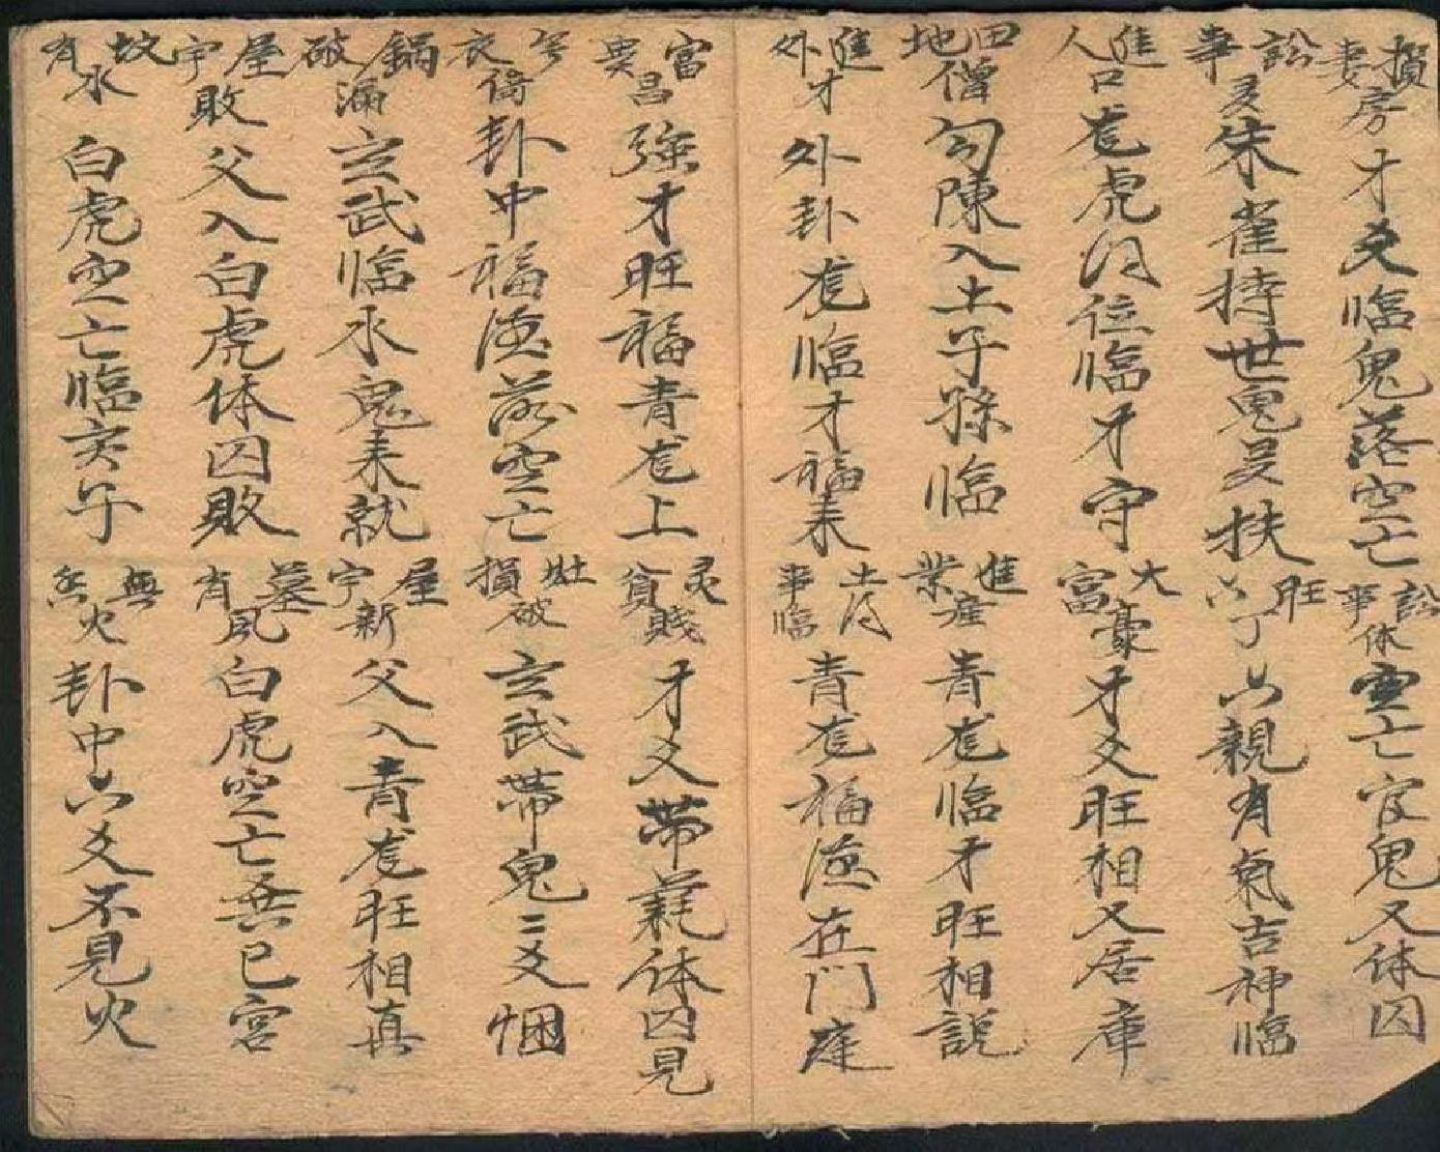 損妻房 才爻臨鬼落空亡
訟事休 空亡官鬼又休囚
訟事 朱雀持世鬼爻扶
旺六丁 六親有氣吉神臨
進人口 虎位臨才守
大富豪 才爻旺相又居庫
田地 勾陳入土子孫臨
進產業 青龙臨才旺相説
進外才 外卦龙臨才福来
青龙福德在門庭
富 昌 才旺福青龙上
貧賤 才爻帶耗休囚見
衣 卦中福德落空亡
灶破損 玄武帶鬼二爻
鍋破漏 玄武臨水鬼来就
屋宇新 父入青龙旺相真
屋宇敗 父入白虎休囚敗
墓有風 白虎空亡 巳宮
坟有水 白虎空亡臨亥子
無 火 卦中六爻不見火